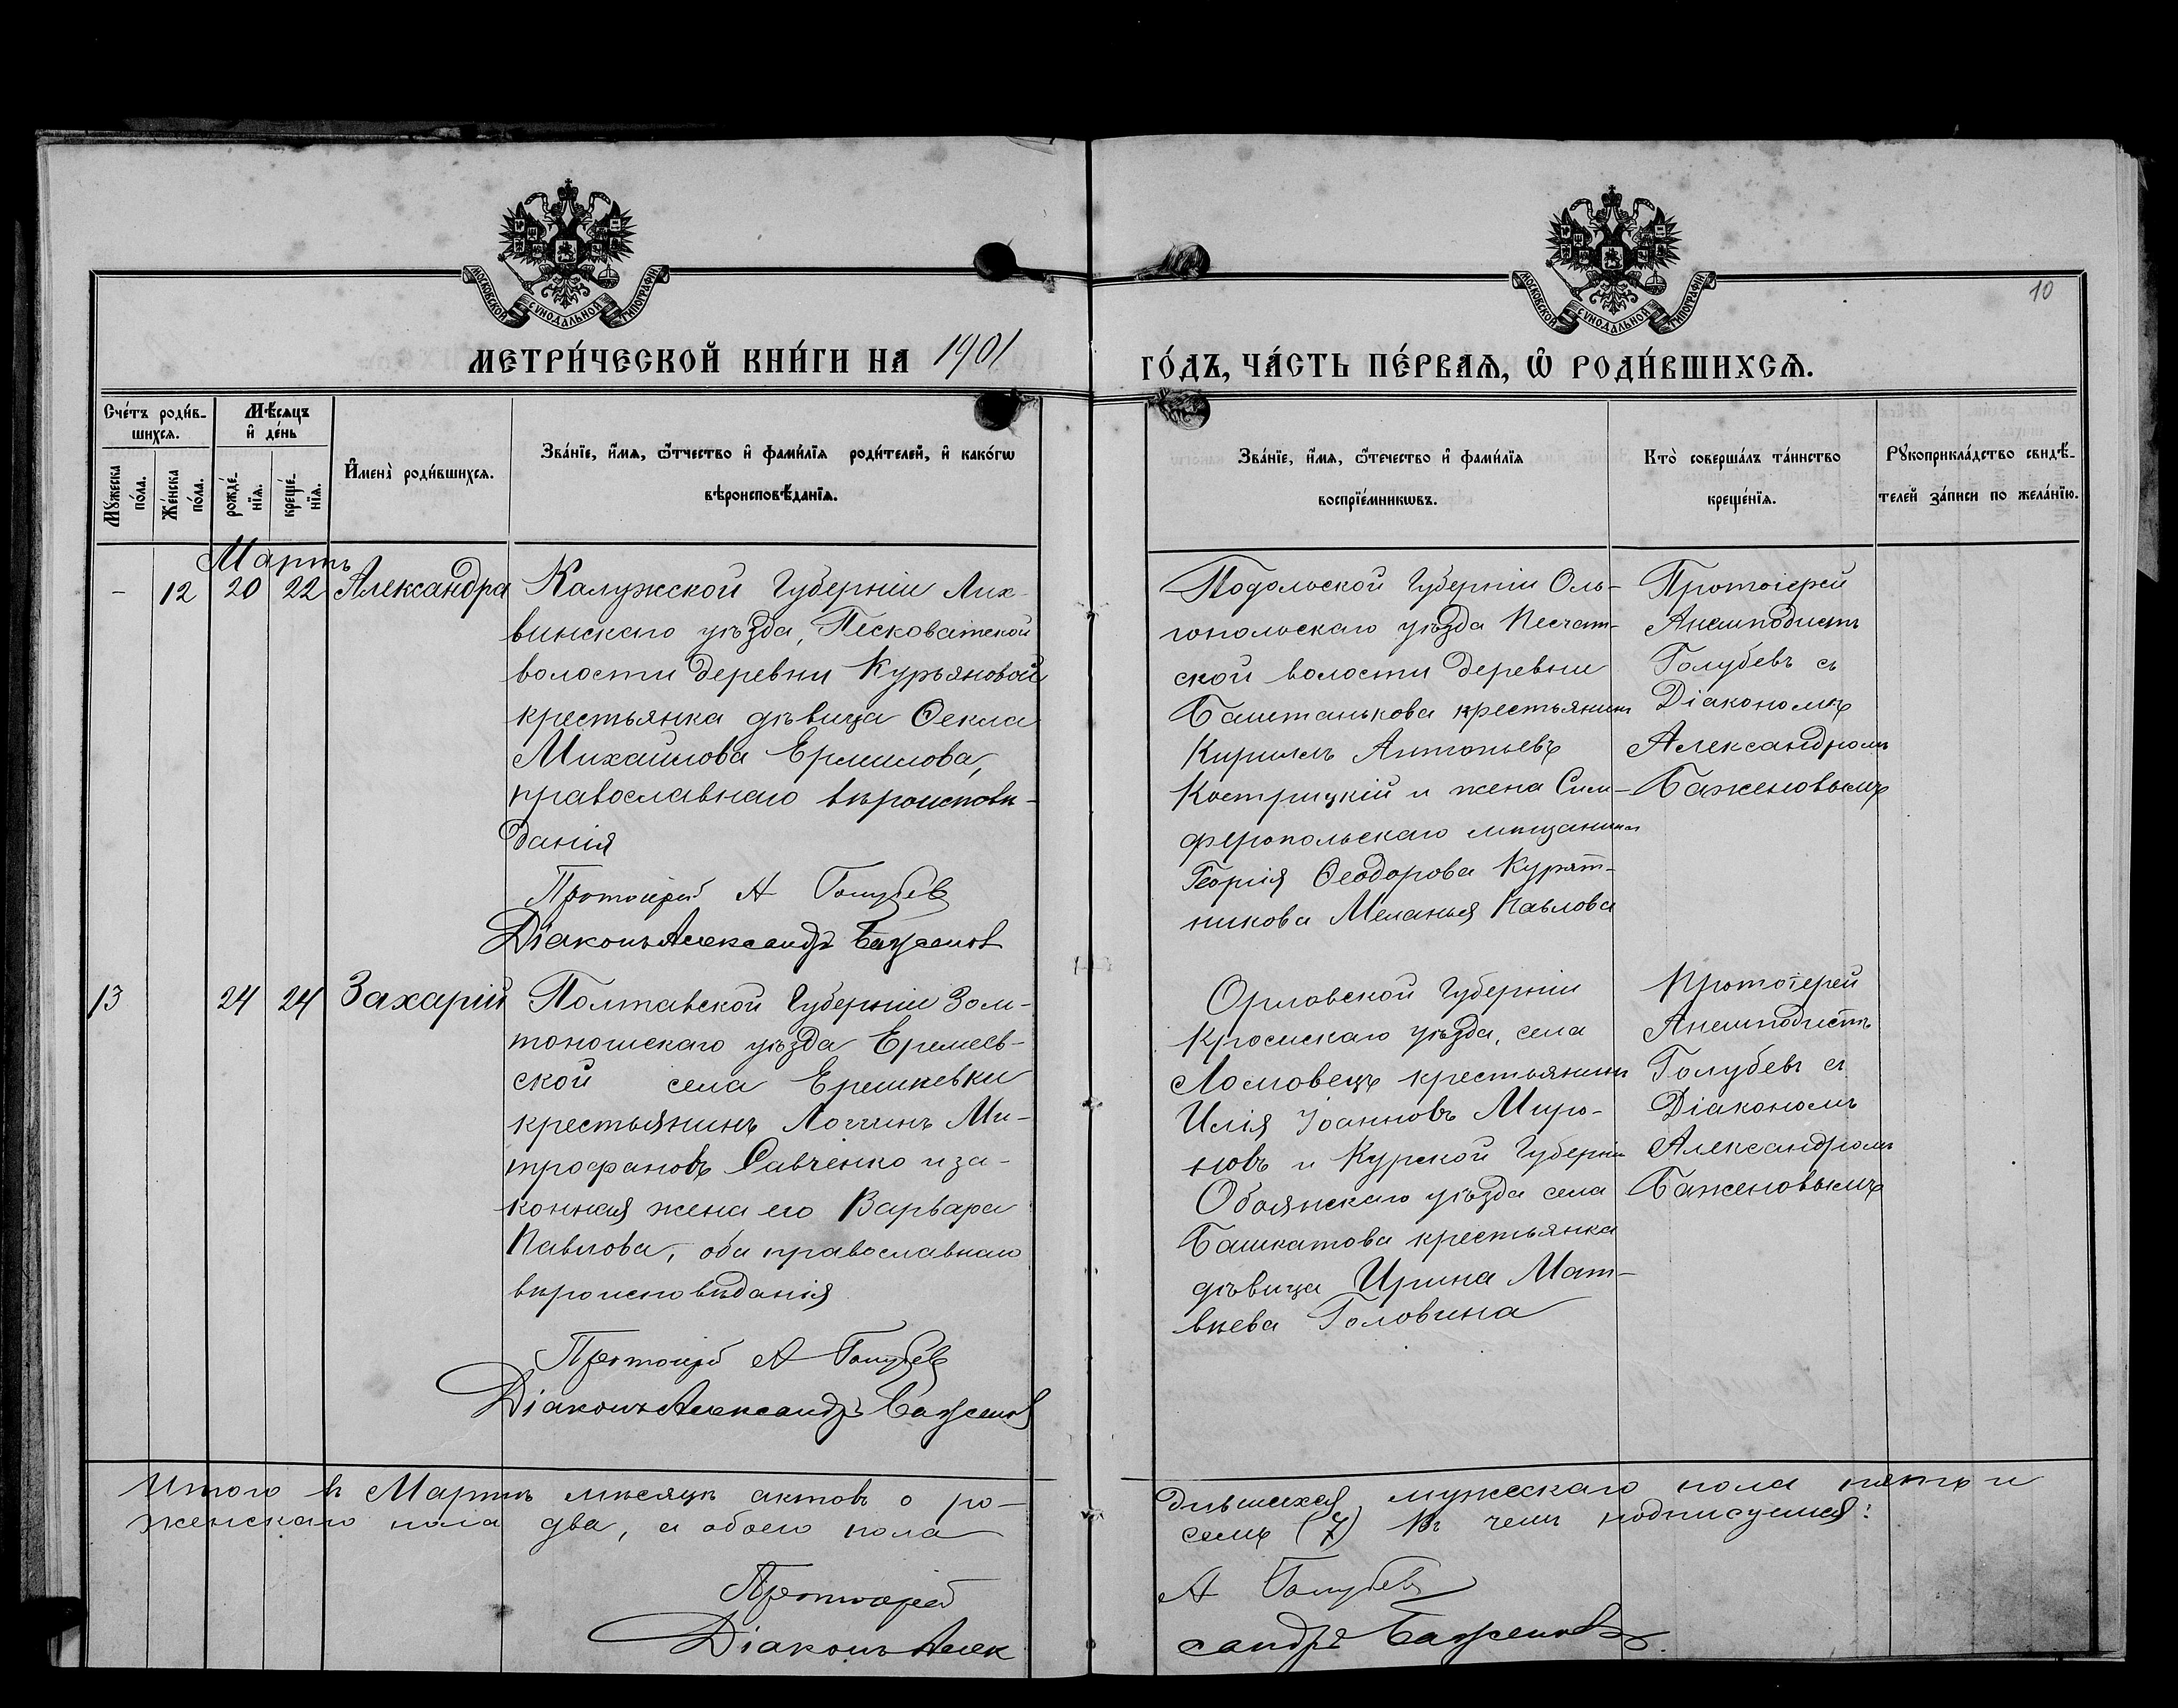 МОСКОВСКОЙ СѴНОДАЛЬНОЙ ТИПОГРАФІИ
МОСКОВСКОЙ СѴНОДАЛЬНОЙ ТИПОГРАФІИ
10
МЕТРИ́ЧЕСКОЙ КНИ́ГИ НА 1901
ГО́ДЪ, ЧА́СТЬ ПЕ́РВАѦ, Ѡ҆ РОДИ́ВШИХСѦ.
Сче́тъ роди́в-
шихсѧ.
Мꙋ́жеска по́ла.
Же́нска по́ла.
Мѣ́сѧцъ
и҆ де́нь
рожде́-
нїѧ.
креще́-
нїѧ.
И҆мена̀ роди́вшихсѧ.
Зва́нїе, и҆́мѧ, ѻ҆́тчество и҆ фами́лїѧ роди́телей, и҆ како́гѡ
вѣроисповѣ́данїѧ.
Зва́нїе, и҆́мѧ, ѻ҆́течество и҆ фами́лїѧ
воспрїе́мникѡвъ.
Кто̀ соверша́лъ та́инство
креще́нїѧ.
Рꙋкоприкла́дство свидѣ́-
телей за́писи по жела́нїю.
Мартъ
- 12 20 22 Александра
Калужской Губерніи Лих-
винскаго уѣзда, Песковатской
волости деревни Курьяновой
крестьянка дѣвица Ѳекла
Михаилова Ермилова,
православнаго вѣроисповѣ-
данія
Протоіерей А Голубев
Діаконъ Александръ Баженов
Подольской Губерніи Оль-
гопольскаго уѣзда Песчан-
ской волости деревни
Баштанькова крестьянинъ
Кириллъ Антоньевъ
Кострицкій и жена Сим-
феропольскаго мѣщанина
Георгія Ѳеодорова Курят-
никова Меланья Павлова
Протоіерей
Анемподистъ
Голубевъ съ
Діакономъ
Александромъ
Баженовымъ
13 24 24 Захарій
Полтавской Губерніи Золо-
тоношскаго уѣзда Еремеев-
ской села Еремѣевки
крестьянинъ Логгинъ Ми-
трофановъ Савченко и за-
конная жена его Варвара
Павлова, оба православнаго
вѣроисповѣданія
Протоіерей А Голубев
Діаконъ Александръ Баженов
Орловской Губерніи
Кромскаго уѣзда, села
Ломовецъ крестьянинъ
Илія Іоанновъ Миро-
новъ и Курской Губерніи
Обоянскаго уѣзда села
Башкатова крестьянка
дѣвица Ирина Мат-
вѣева Головина
Протоіерей
Анемподистъ
Голубевъ съ
Діакономъ
Александромъ
Баженовымъ
Итого въ Мартѣ мѣсяцѣ актовъ о ро-
дившихся мужескаго пола пять и
женскаго пола два, а обоего пола
семь (7) Въ чемъ подписуемся:
Протоіерей А Голубевъ
Діаконъ Александръ Баженовъ.